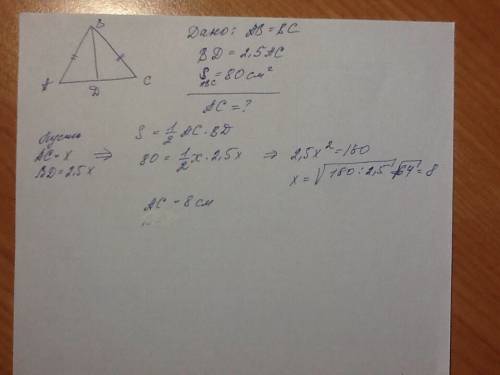 B
A
D
C
Дано: AB = BC
BD = 2,5 AC
S ABC = 80 см²
AC = ?
Пусть
AC = x ⇒
BD = 2,5x
S = 1/2 AC · BD
80 = 1/2 x · 2,5x ⇒ 2,5x² = 160
x = √160 : 2,5 = √64 = 8
AC = 8 см